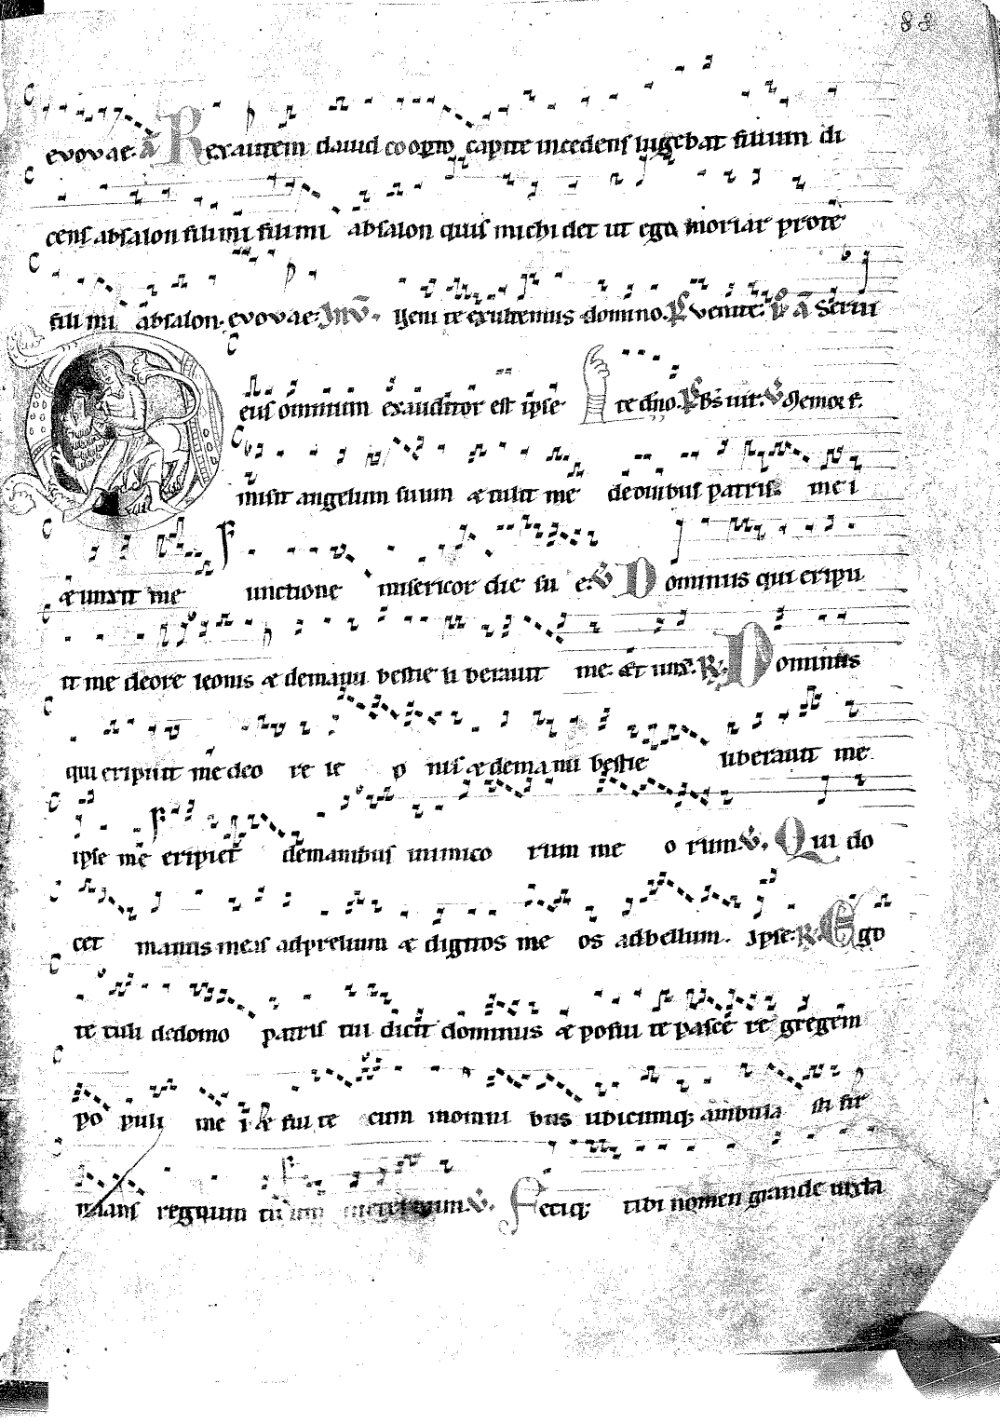 83
evovae. a Rex autem dauid cooꝑto capite incedens lugebat filium di
cens absalon fili mi fili mi absalon quis michi det ut ego moriar pro te
fili mi absalon. evovae. Inv̄. Ueni te exultemus domino. P̄s venite. a Serui
Deus omnium exauditor est ipse te dn̄o. P̄s Bs̄ uir. V̄ Memor f.
misit angelum suum & tulit me de ouibus patris mei
& unxit me unctione misericordie su e. V̄ Dominus qui eripu
it me de ore leonis & de manu bestie liberauit me. Et unx̄. R̄ Dominus
qui eripuit me de o re le o nis & de manu bestie liberauit me
ipse me eripiet de manibus inimico rum me o rum. V̄. Qui do
cet manus meas ad prelium & digitos me os ad bellum. Ipse. R̄. Ego
te tuli de domo patris tui dicit dominus & posui te pasce re gregem
po puli me i & fui te cum in omni bus ubicumq; ambula sti fir
mans regnum tuum in eternum. V̄. Feciq; tibi nomen grande iuxta